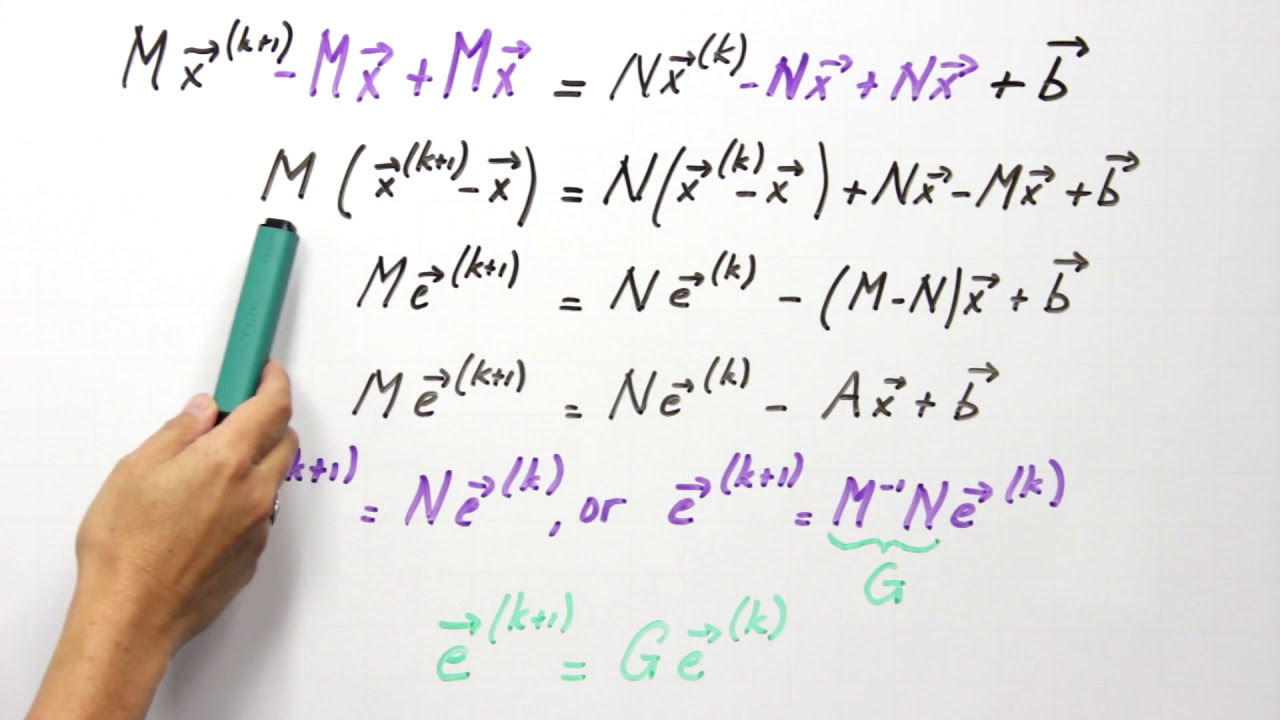 M x⃗^(k+1) - M x⃗ + M x⃗ = N x⃗^(k) - N x⃗ + N x⃗ + b⃗
M ( x⃗^(k+1) - x⃗ ) = N ( x⃗^(k) - x⃗ ) + N x⃗ - M x⃗ + b⃗
M e⃗^(k+1) = N e⃗^(k) - (M - N) x⃗ + b⃗
M e⃗^(k+1) = N e⃗^(k) - A x⃗ + b⃗
k+1) = N e⃗^(k), or e⃗^(k+1) = M⁻¹ N e⃗^(k)
G
e⃗^(k+1) = G e⃗^(k)